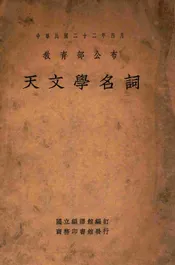 中華民國二十二年四月
教育部公布
天文學名詞
國立編譯館編訂
商務印書館發行